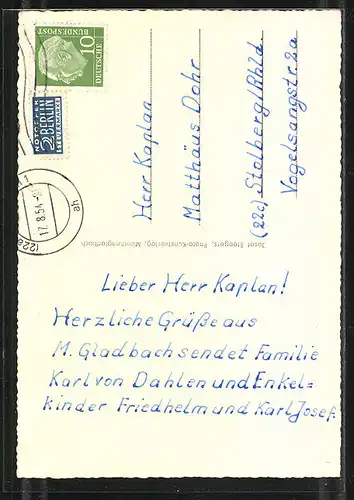 DEUTSCHE
BUNDESPOST
10
NOTOPFER
2 BERLIN
STEUERMARKE
17.8.54
(22a)
ah
Herr Kaplan
Matthäus Dohr
(22c) Stolberg/Rhld
Vogelsangstr. 2a
Josef Steegers, Photo-Kunstverlag, Mönchengladbach
Lieber Herr Kaplan!
Herzliche Grüße aus
M. Gladbach sendet Familie
Karl von Dahlen und Enkel=
kinder Friedhelm und Karl Josef.